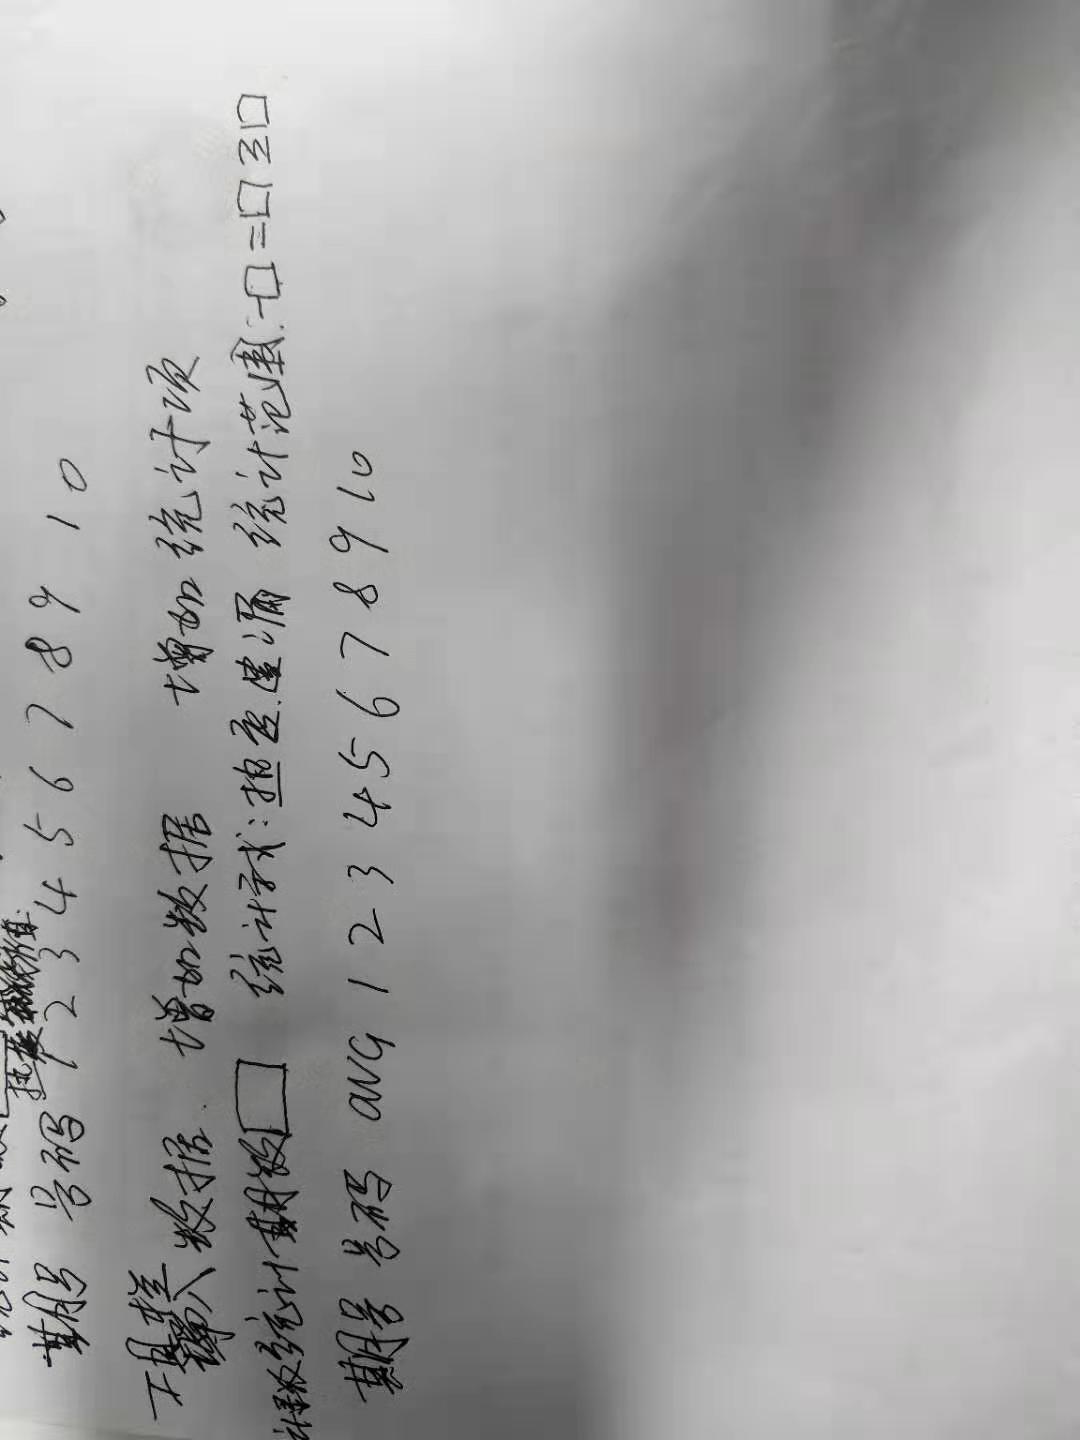 统计期数□
期号 号码 1 2 3 4 5 6 7 8 9 10
工具栏
输入数据. 增加数据 增加统计项
统计期数□ 统计方式:热度.遗漏 统计范围:-□=□至□
期号 号码 avg 1 2 3 4 5 6 7 8 9 10